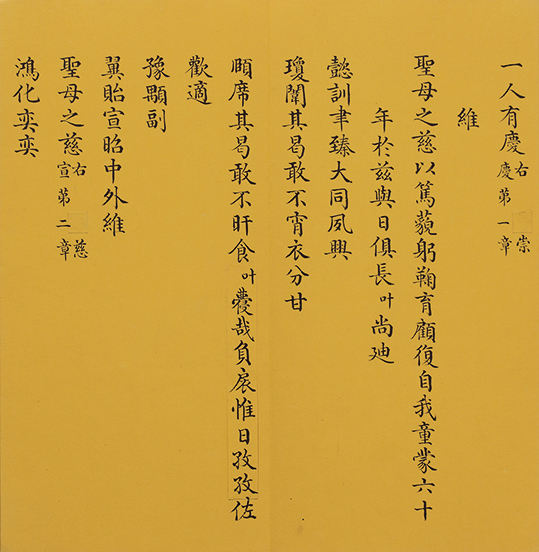 一人有慶右崇慶第一章
維
聖母之慈以篤藐躬鞠育顧復自我童蒙六十
年於兹與日俱長叶尚迪
懿訓聿臻大同夙興
瓊闈其曷敢不宵衣分甘
頤席其曷敢不旰食叶哉負扆惟日孜孜佐
歡適
豫顯副
翼貽宣昭中外維
聖母之慈右慈宣第二章
鴻化奕奕